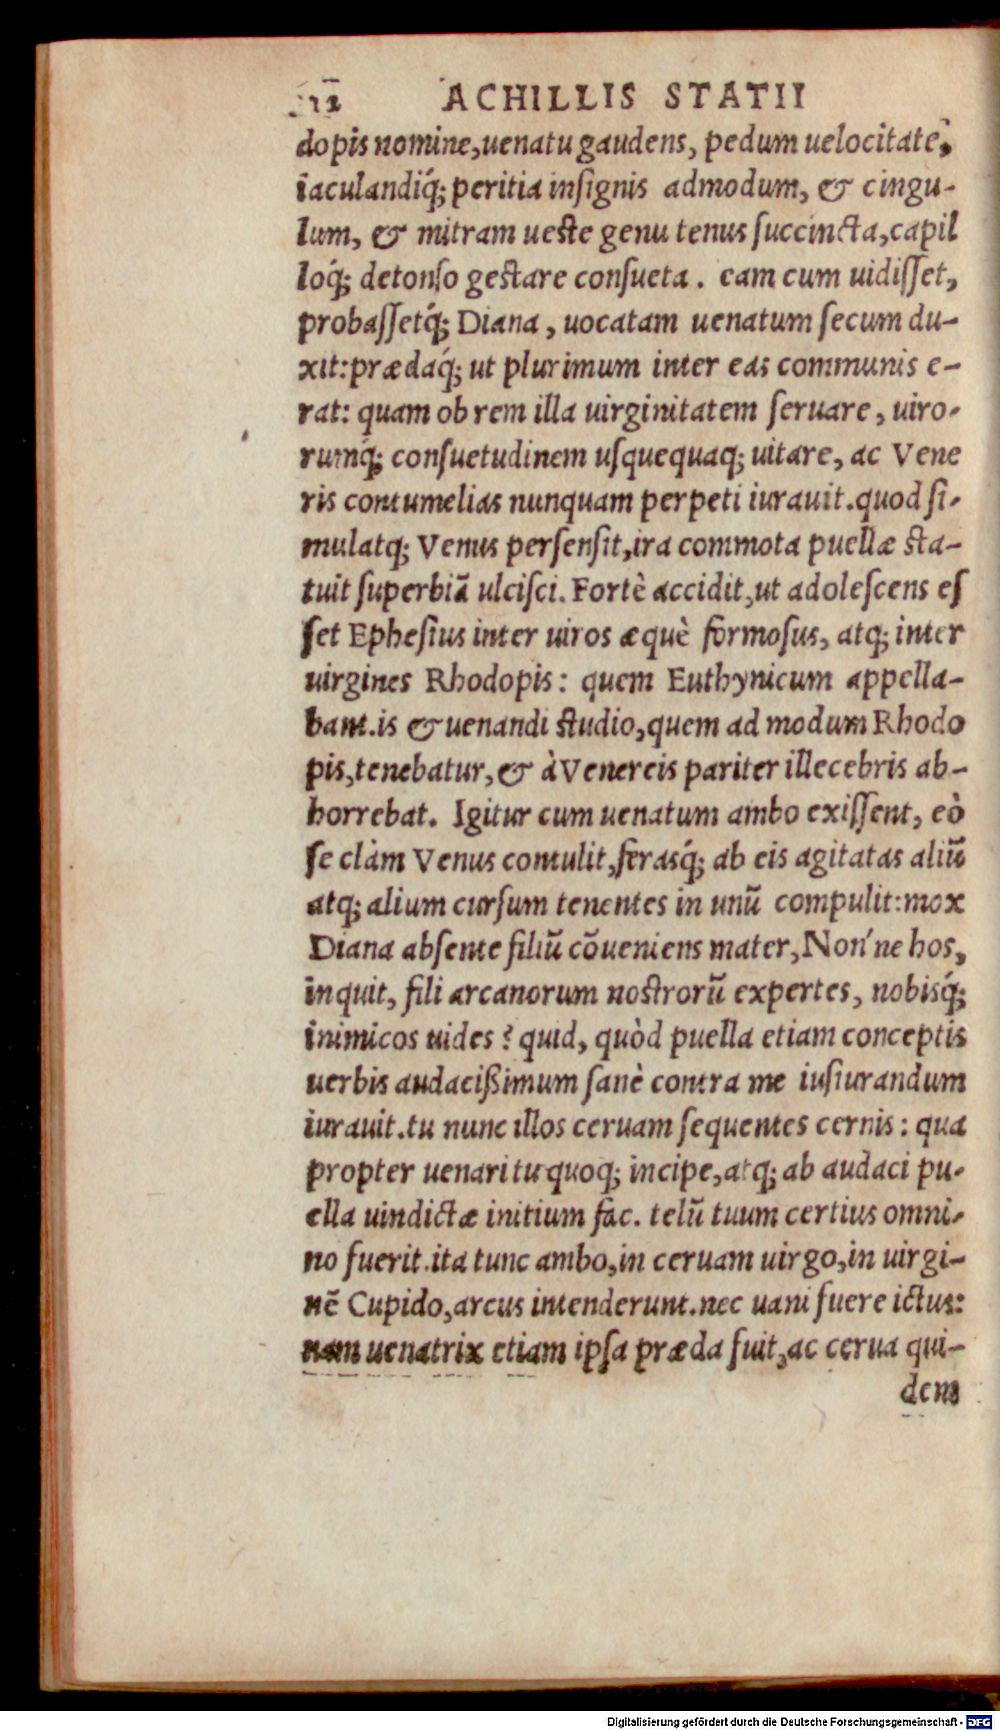 112 ACHILLIS STATII
dopis nomine, uenatu gaudens, pedum uelocitate,
iaculandiq́; peritia inſignis admodum, & cingu-
lum, & mitram ueſte genu tenus ſuccincta, capil
loq́; detonſo geſtare conſueta. eam cum uidiſſet,
probaſſetq́; Diana, uocatam uenatum ſecum du-
xit: prædaq́; ut plurimum inter eas communis e-
rat: quam ob rem illa uirginitatem ſeruare, uiro-
rumq́; conſuetudinem uſquequaq; uitare, ac Vene
ris contumelias nunquam perpeti iurauit. quod ſi-
mulatq; Venus perſenſit, ira commota puellæ ſta-
tuit ſuperbiã ulciſci. Fortè accidit, ut adoleſcens eſ
ſet Epheſius inter uiros æquè formoſus, atq; inter
uirgines Rhodopis: quem Euthynicum appella-
bant. is & uenandi ſtudio, quem ad modum Rhodo
pis, tenebatur, & à Venereis pariter illecebris ab-
horrebat. Igitur cum uenatum ambo exiſſent, eò
ſe clàm Venus contulit, ferasq́; ab eis agitatas aliũ
atq; alium curſum tenentes in unũ compulit: mox
Diana abſente filiũ cõueniens mater, Non'ne hos,
inquit, fili arcanorum noſtrorũ expertes, nobisq́;
inimicos uides? quid, quòd puella etiam conceptis
uerbis audacißimum ſanè contra me iuſiurandum
iurauit. tu nunc illos ceruam ſequentes cernis: qua
propter uenari tu quoq; incipe, atq; ab audaci pu-
ella uindictæ initium fac. telũ tuum certius omni-
no fuerit. ita tunc ambo, in ceruam uirgo, in uirgi-
nẽ Cupido, arcus intenderunt. nec uani fuere ictus:
nam uenatrix etiam ipſa præda fuit, ac cerua qui-
dem
Digitalisierung gefördert durch die Deutsche Forschungsgemeinschaft - DFG